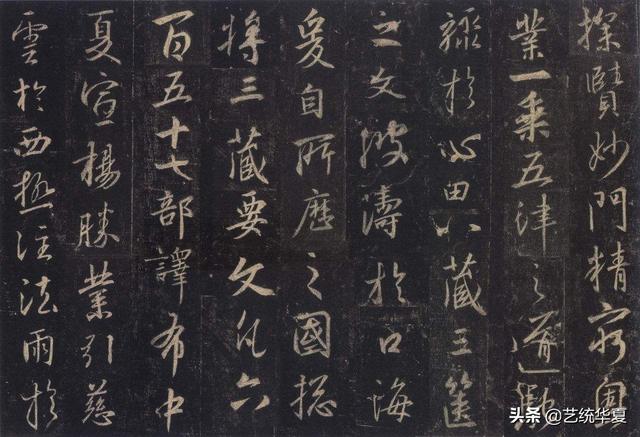 探賾妙門精窮奧
業一乘五律之道馳
驟於心田八藏三篋
之文波濤於口海
爰自所歷之國總
將三藏要文凡六
百五十七部譯布中
夏宣揚勝業引慈
雲於西極注法雨於
头条 @艺统华夏